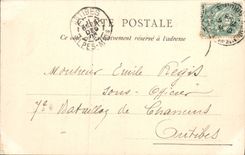 POSTALE
Ce côté exclusivement réservé à l'adresse
Monsieur Emile Régis
Sous-Officier
7e Bataillon de Chasseurs
Antibes